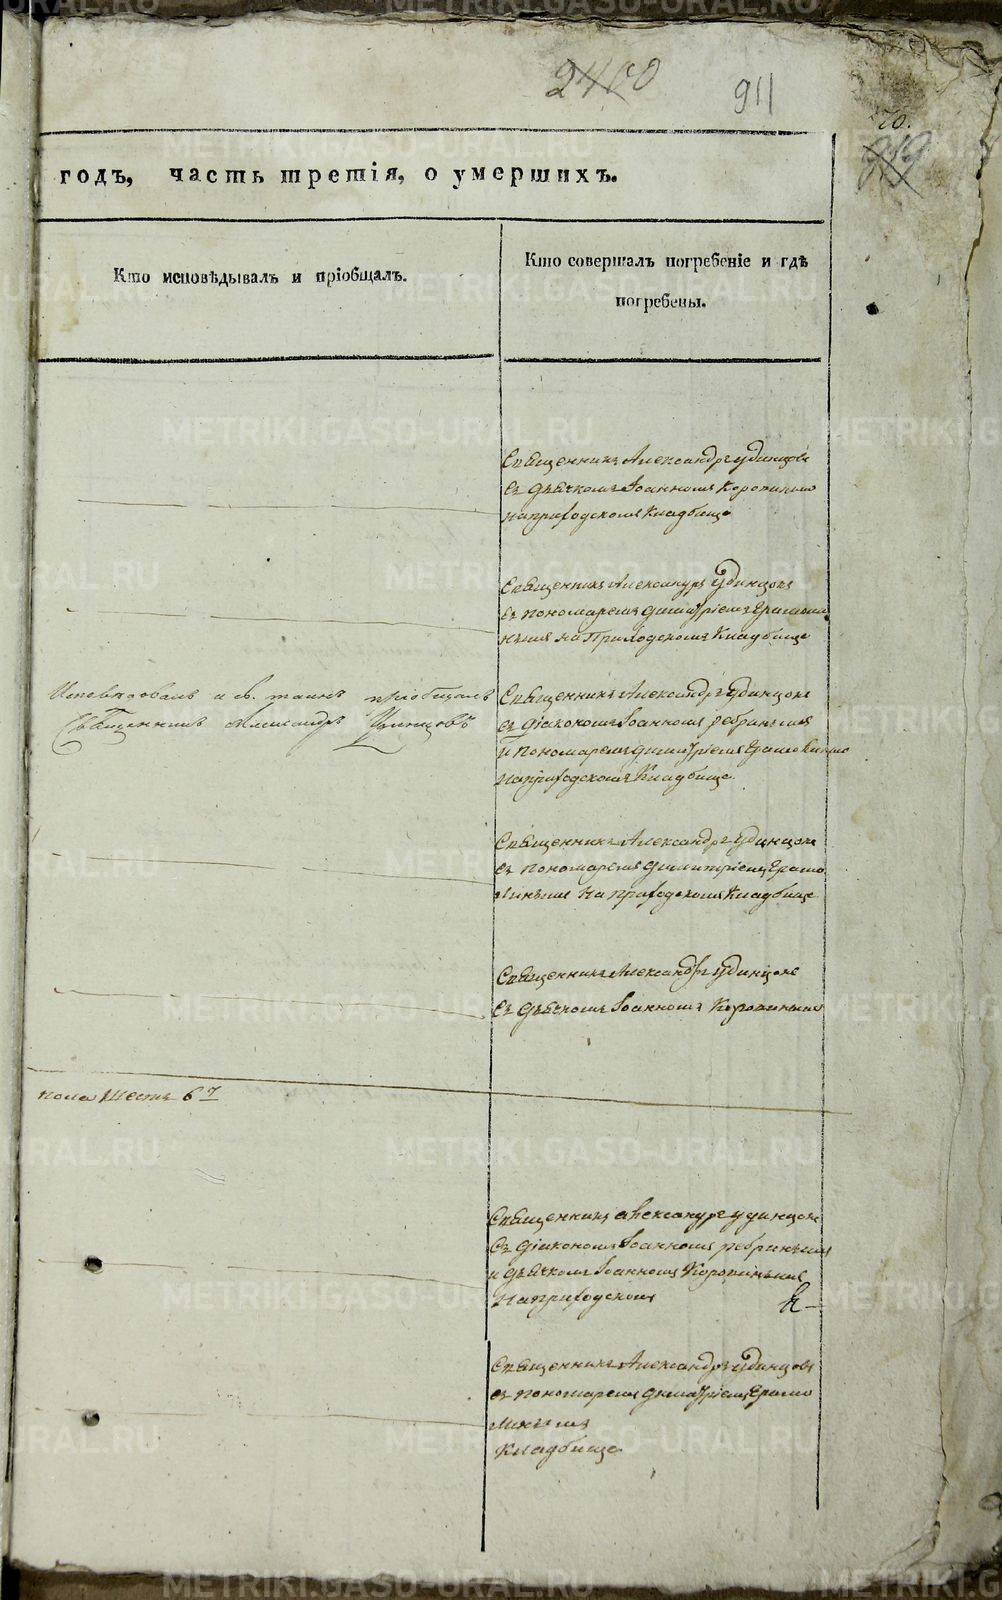 2400
911
70.
919
годъ, часть третія, о умершихъ.
Кто исповѣдывалъ и пріобщалъ.
Кто совершалъ погребеніе и гдѣ
погребены.
Священникъ Александръ Удинцовъ
съ дьячкомъ Іоанномъ Коровинымъ
на приходскомъ Кладбище
Священникъ Александръ Удинцовъ
съ пономаремъ Димитріемъ
на Приходскомъ Кладбище
Исповѣдовалъ и св. таинъ пріобщалъ
Священникъ Александръ Удинцовъ
Священникъ Александръ Удинцовъ
съ діакономъ Іоанномъ Ребринымъ
и пономаремъ Димитріемъ
на приходскомъ Кладбище
Священникъ Александръ Удинцовъ
съ пономаремъ Димитріемъ
на приходскомъ Кладбище
Священникъ Александръ Удинцовъ
съ дьячкомъ Іоанномъ Коровинымъ
пола Шесть 6
Священникъ Александръ Удинцовъ
съ діакономъ Іоанномъ Ребринымъ
и дьячкомъ Іоанномъ Коровинымъ
на приходскомъ К
Священникъ Александръ Удинцовъ
съ пономаремъ Димитріемъ
Кладбище
METRIKI.GASO-URAL.RU